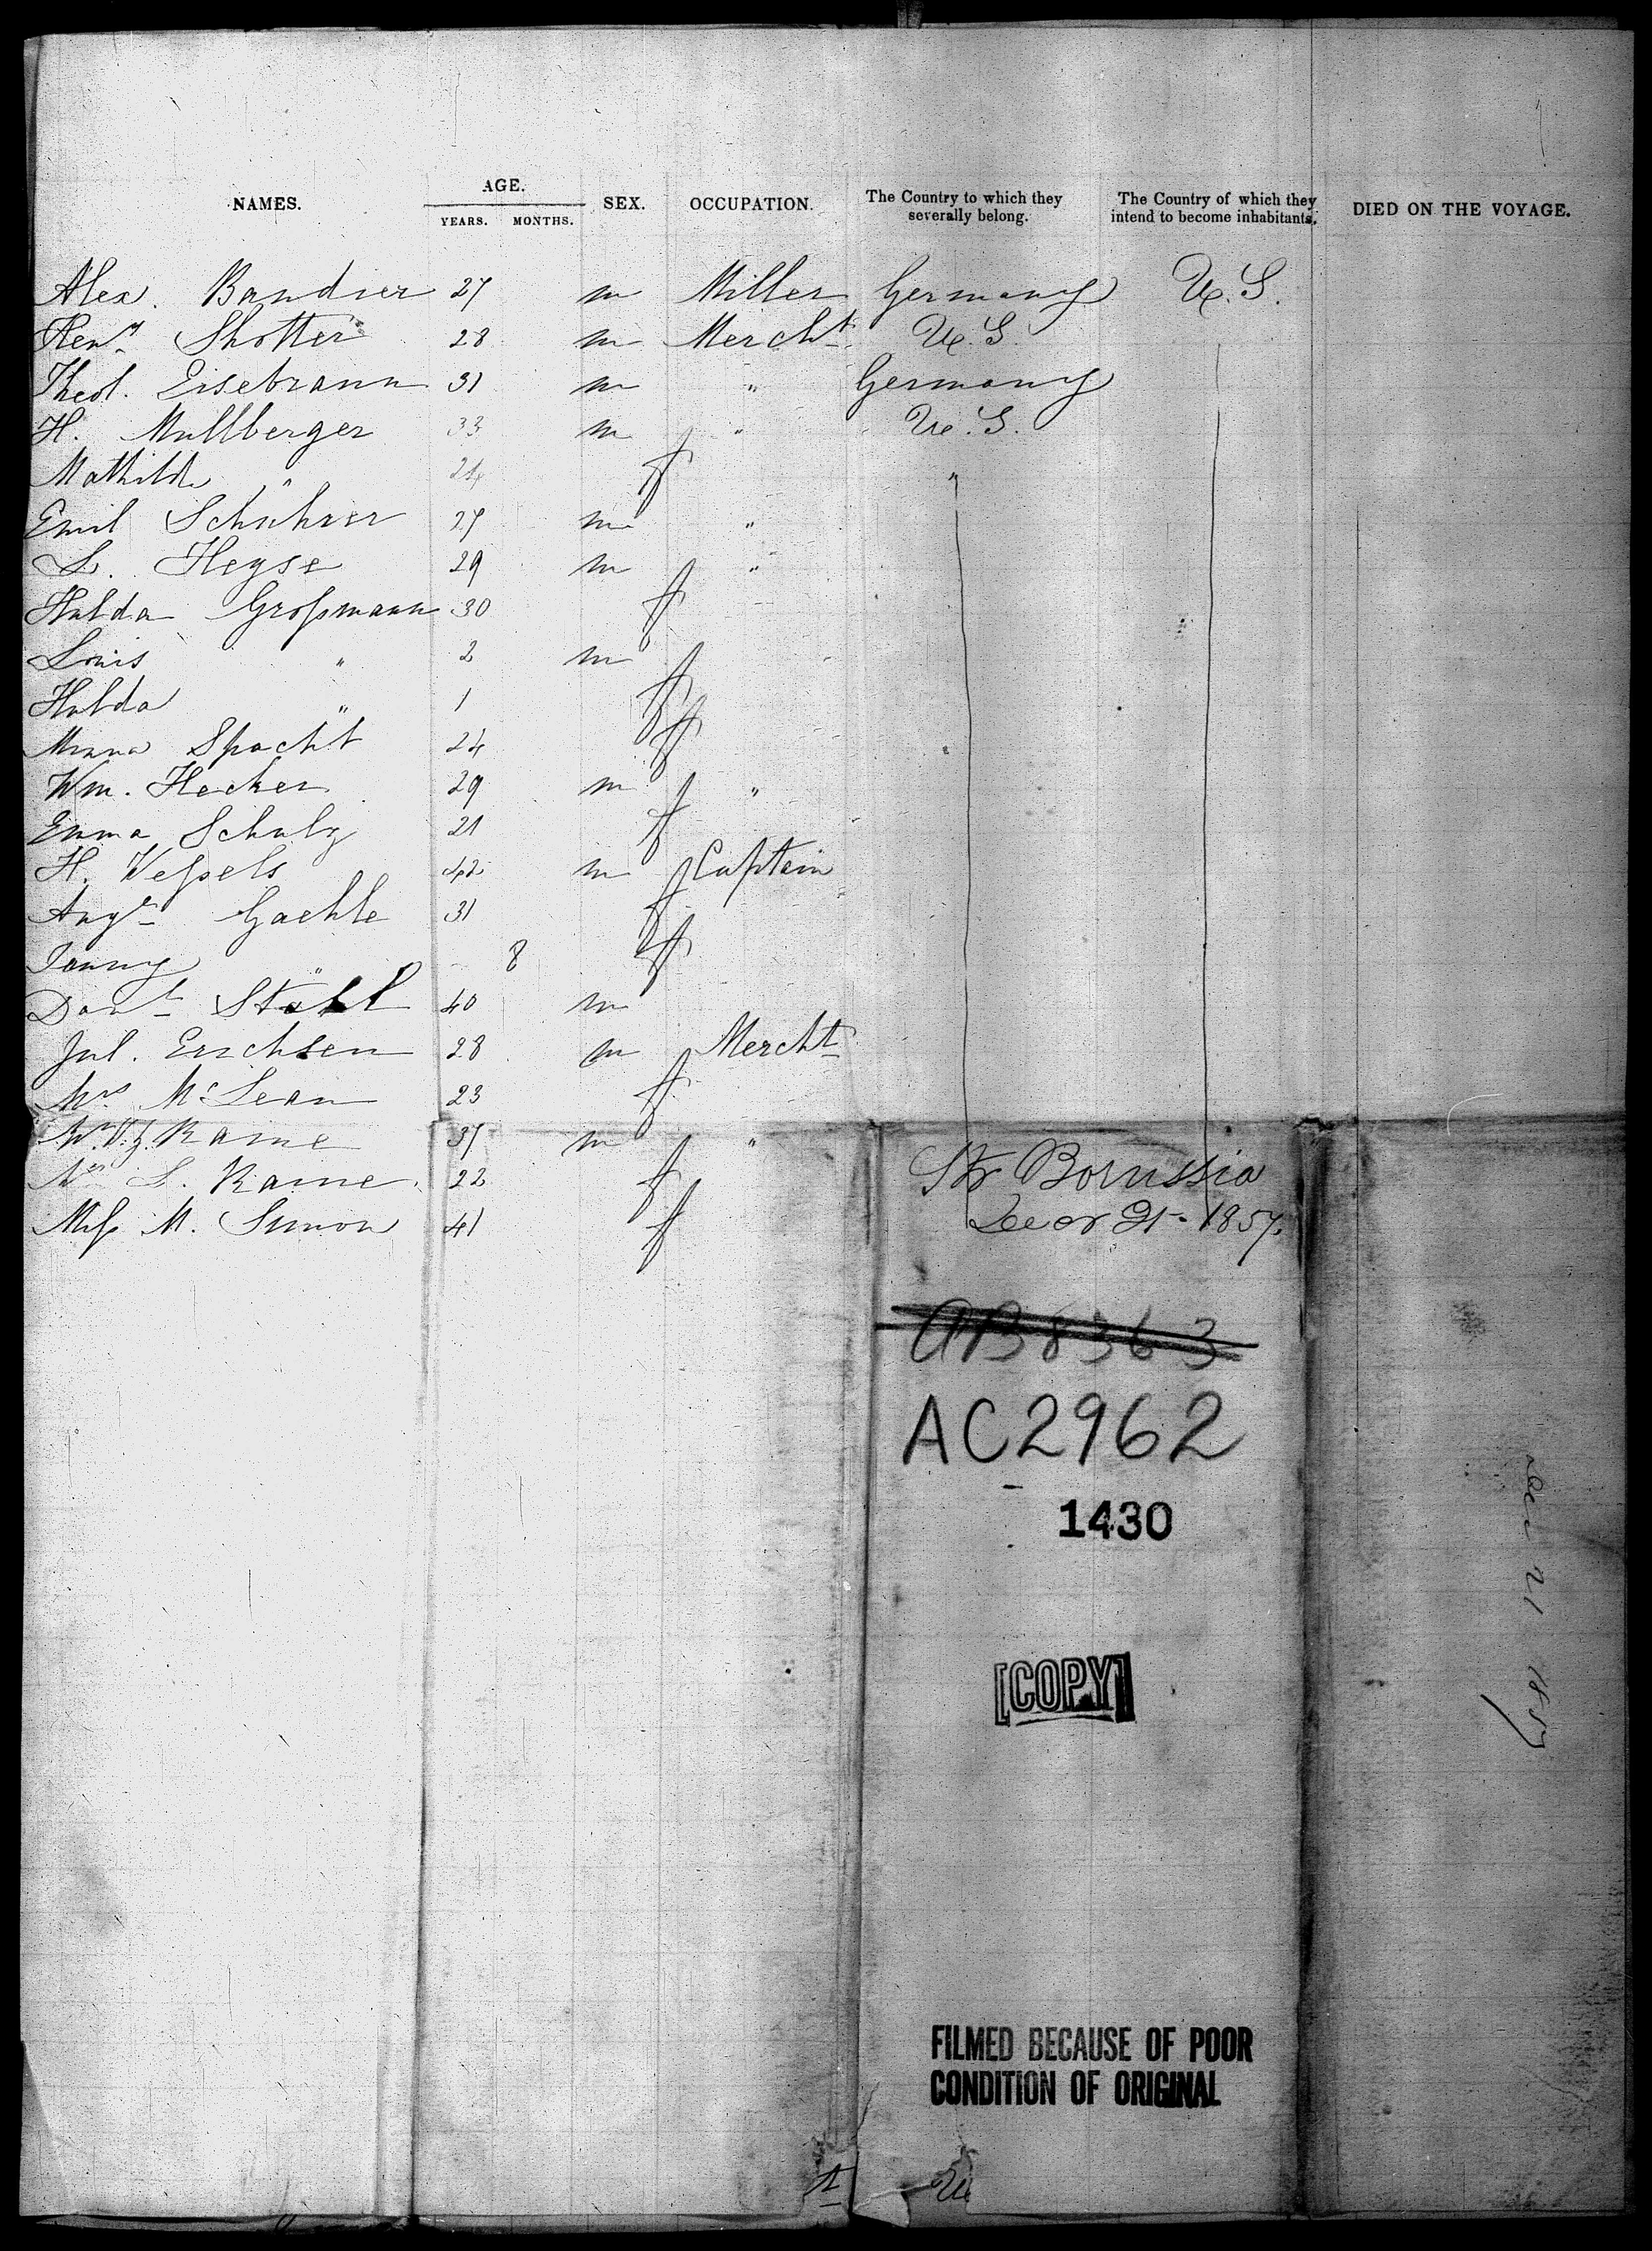 NAMES. AGE. SEX. OCCUPATION. The Country to which they severally belong. The Country of which they intend to become inhabitants. DIED ON THE VOYAGE.
YEARS. MONTHS.
Alex. Bandier 27 m Miller Germany U.S.
Heny Shotter 28 m Mercht. U.S.
Theod. Eisebrann 31 m " Germany
H. Mullberger 33 m " U.S.
Mathilde " 24 f "
Emil Schuhrer 27 m "
L. Heyse 29 m "
Hulda Großmann 30 f
Louis " 2 m
Hulda " 1 f
Minna Spacht 24 f
Wm. Hecker 29 m "
Emma Schulz 21 f
H. Weßels 42 m Captain
Auge Gaehle 31 f
Fanny " 8 f
Danl Stahl 40 m
Jul. Erichsen 28 m Mercht
Mrs McLean 23 f
Raine 37 m "
L. Raine 22 f
Miß M. Simon 41 f
Str Borussia
Decr 21 1857.
AB8363
AC2962
1430
Dec 21 1857
[COPY]
FILMED BECAUSE OF POOR
CONDITION OF ORIGINAL